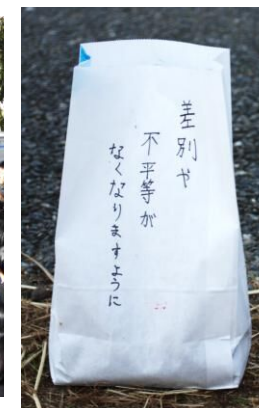 差別や
不平等が
なくなりますように